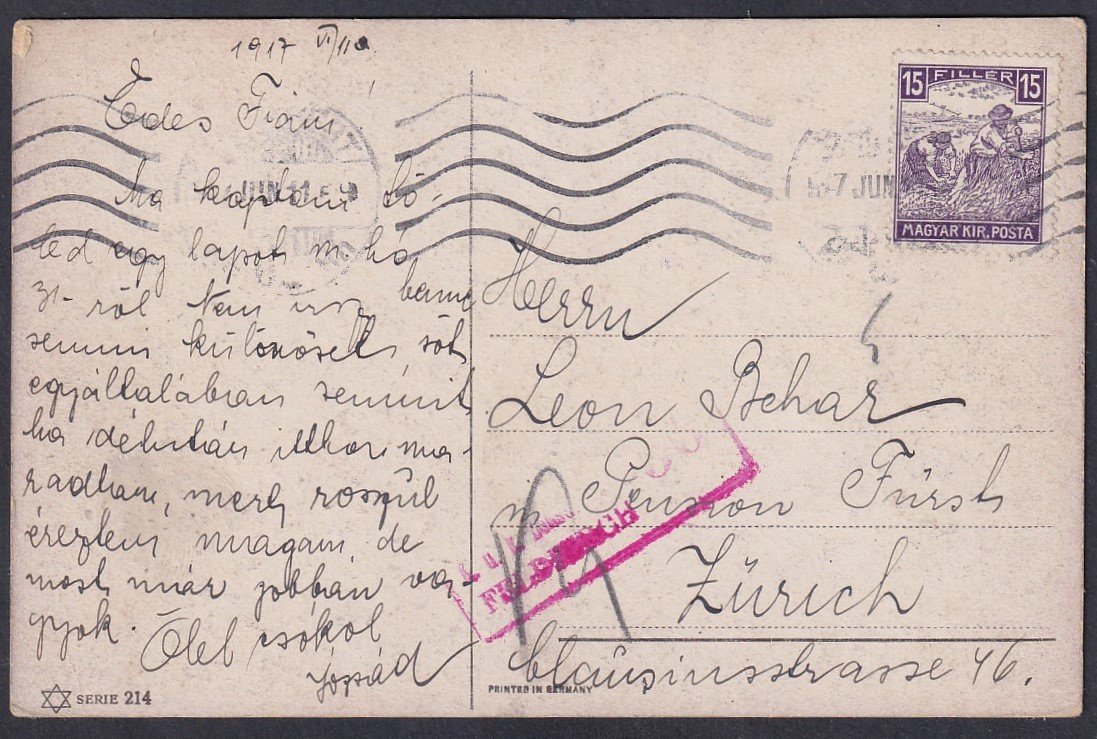 1917 VI/11
Édes Fiam!
Ma kaptam tő-
led egy lapot m. hó
31-ről Nem irsz benne
semmi különöset, sőt
egyáltalában semmit
ma délután itthon ma-
radtam, mert roszúl
éreztem magam, de
most már jobban va-
gyok.
Ölel csókol
Józsád
SERIE 214
15 FILLÉR 15
MAGYAR KIR. POSTA
JUN 11
JUN
Herrn
Leon Behar
Pension Fürst
Zürich
Clausiusstrasse 46.
FELDKIRCH
PRINTED IN GERMANY